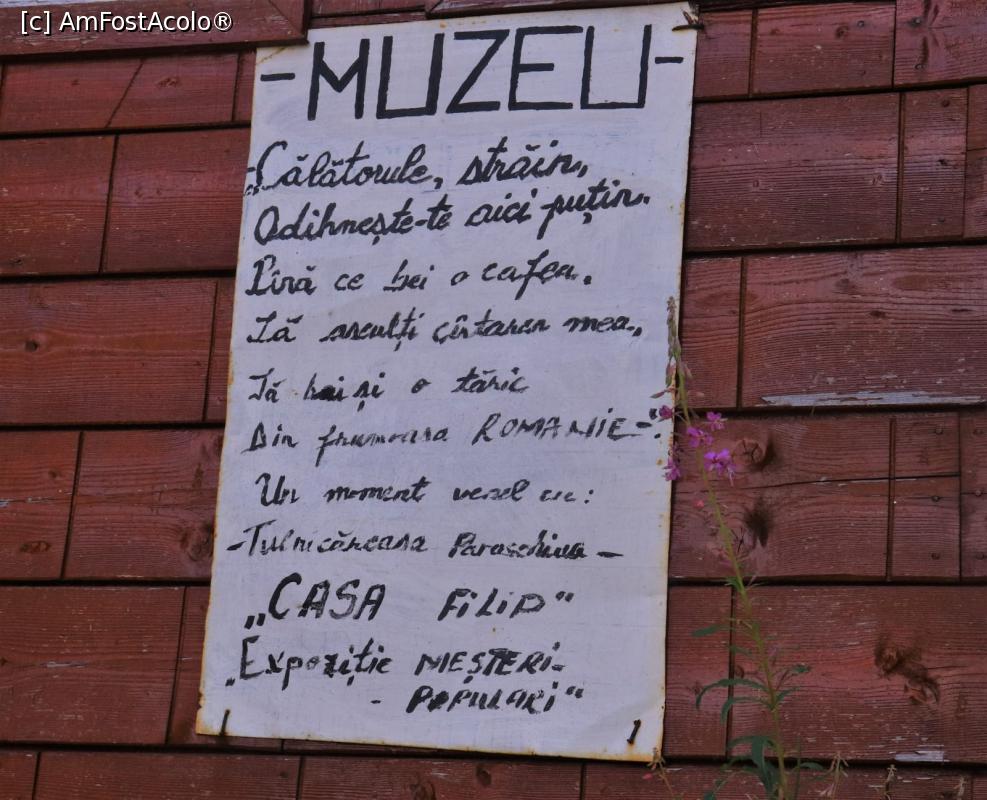 [c] AmFostAcolo®
- MUZEU -
„Călătorule, străin,
Odihnește-te aici puțin.
Pînă ce bei o cafea.
Să asculți cîntarea mea,
Să bei și o tăric
Din frumoasa ROMANIE-".
Un moment vesel cu:
-Tulnicăreasa Paraschiva -
„CASA FILIP"
„Expoziție MEȘTERI-
- POPULARI"